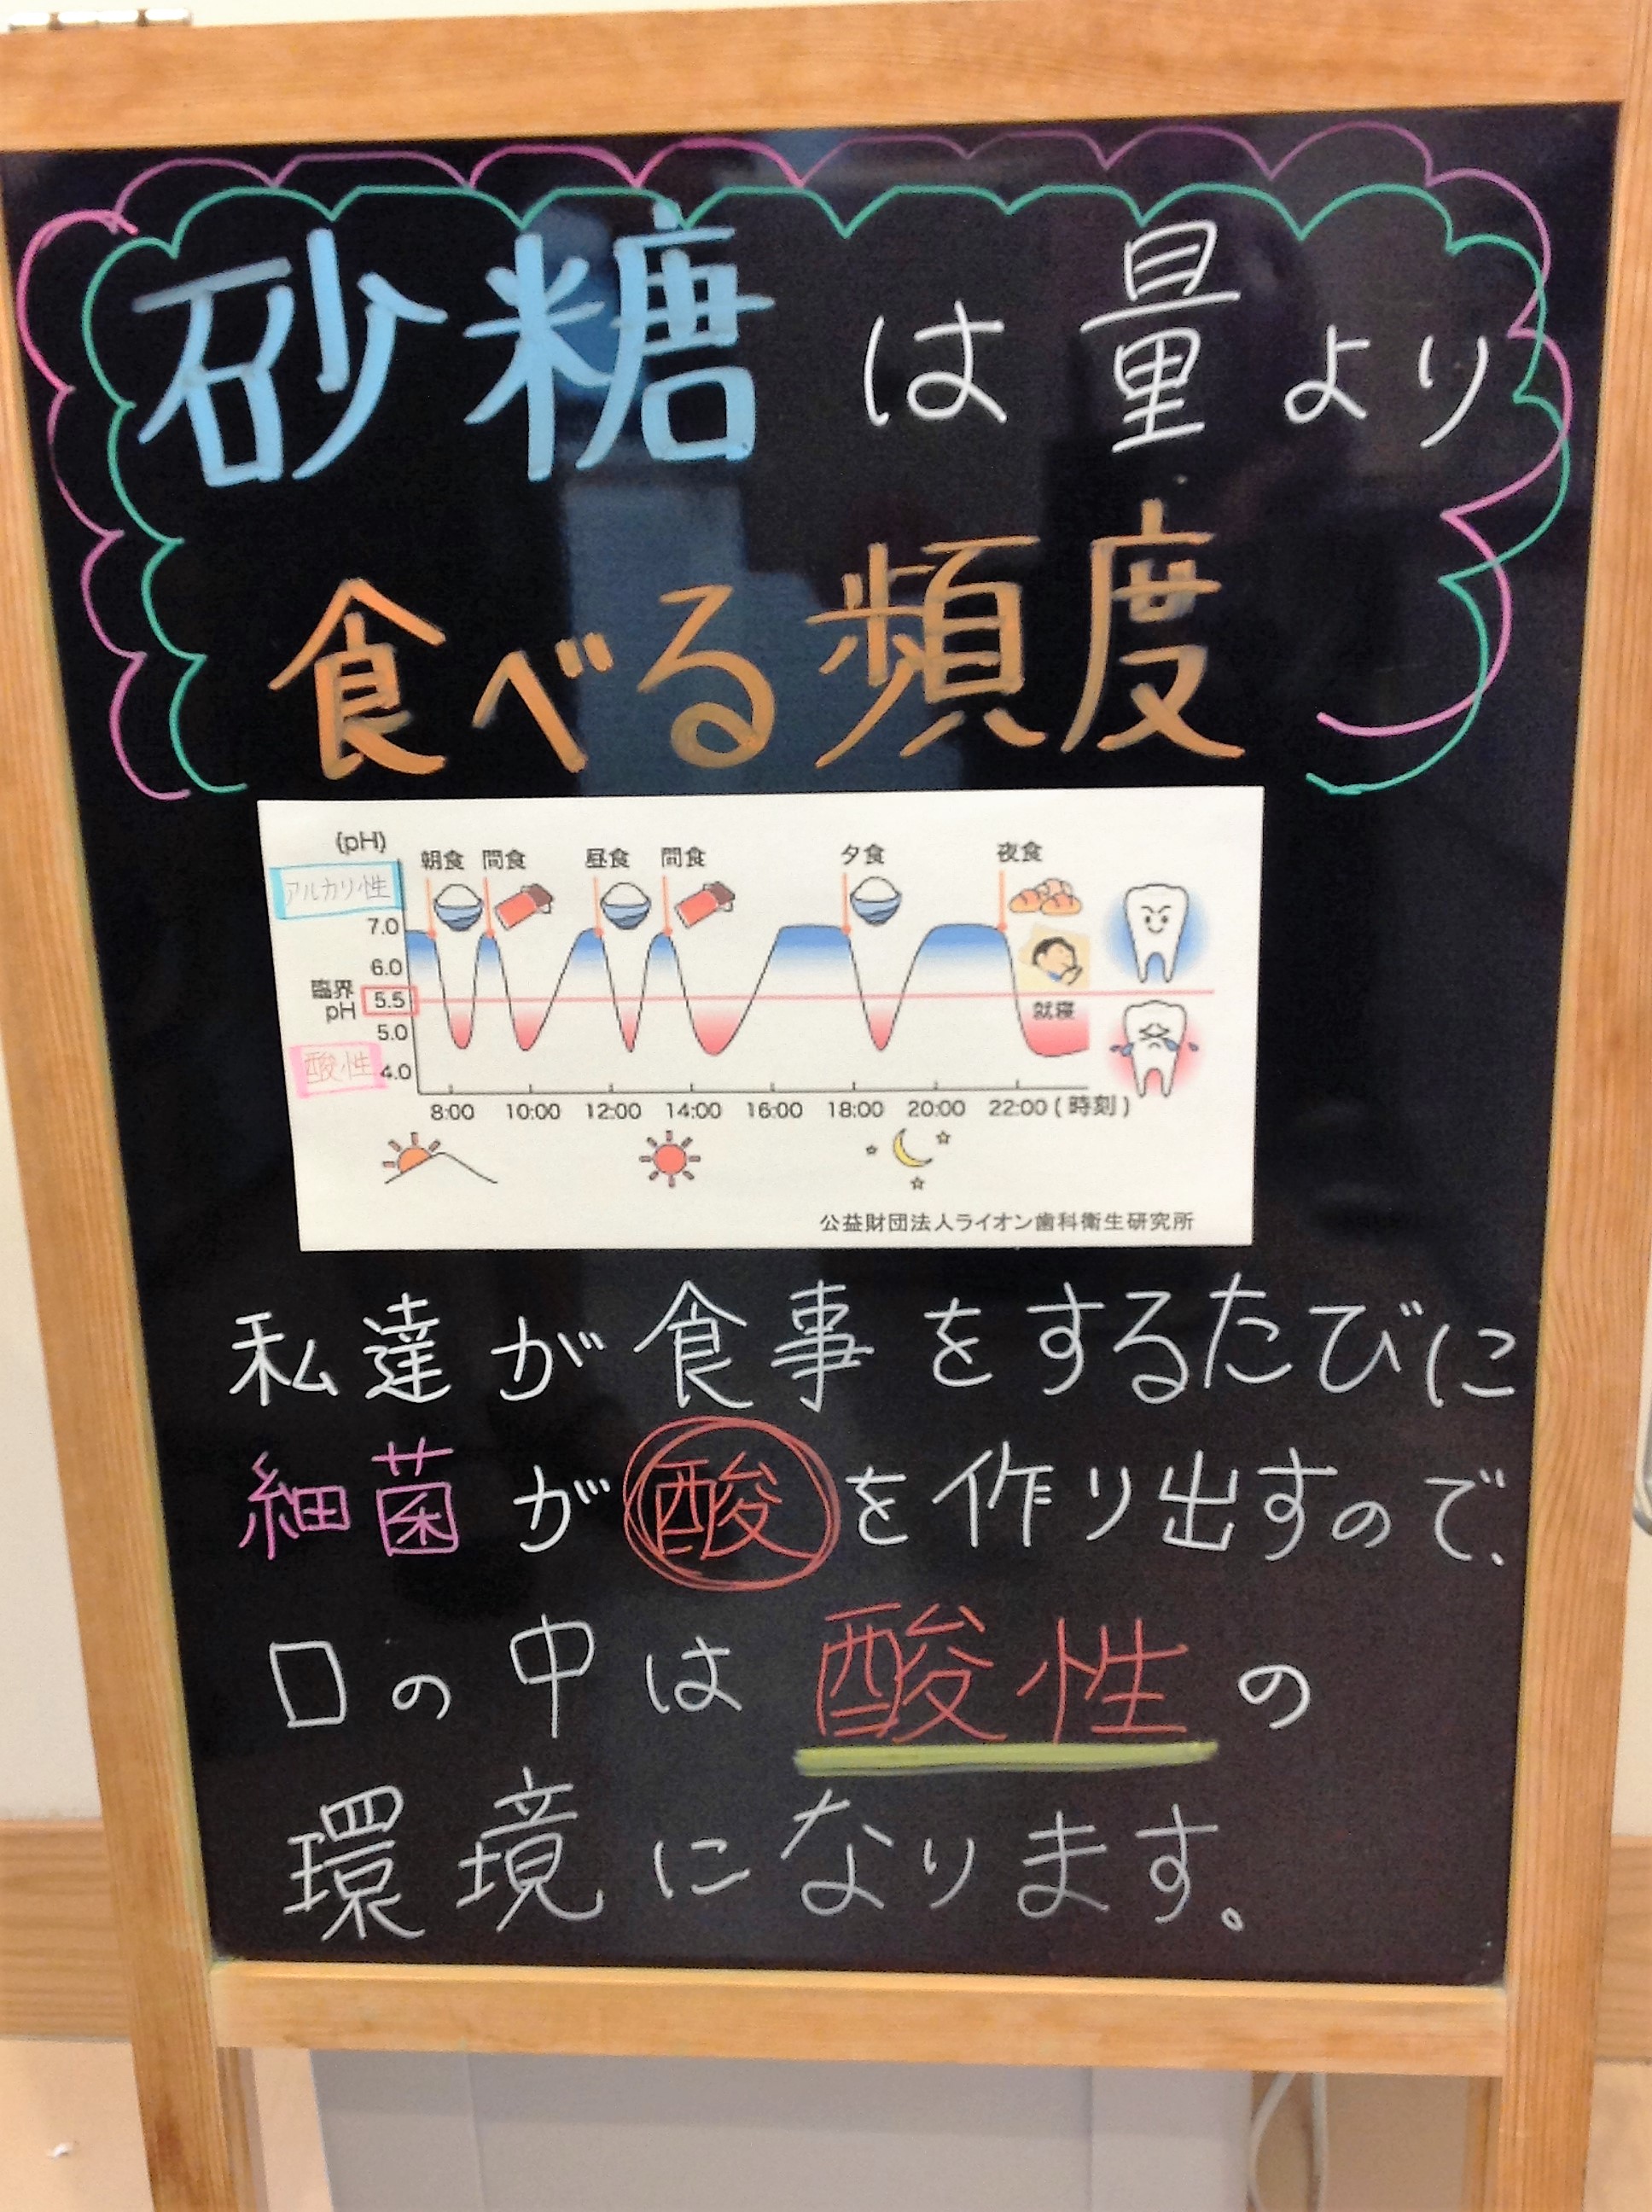 砂糖は量より
食べる頻度
(pH)
朝食 間食 昼食 間食 夕食 夜食
アルカリ性
7.0
6.0
臨界
pH
5.5
就寝
5.0
酸性
4.0
8:00 10:00 12:00 14:00 16:00 18:00 20:00 22:00 (時刻)
公益財団法人ライオン歯科衛生研究所
私達が食事をするたびに
細菌が酸を作り出すので、
口の中は酸性の
環境になります。